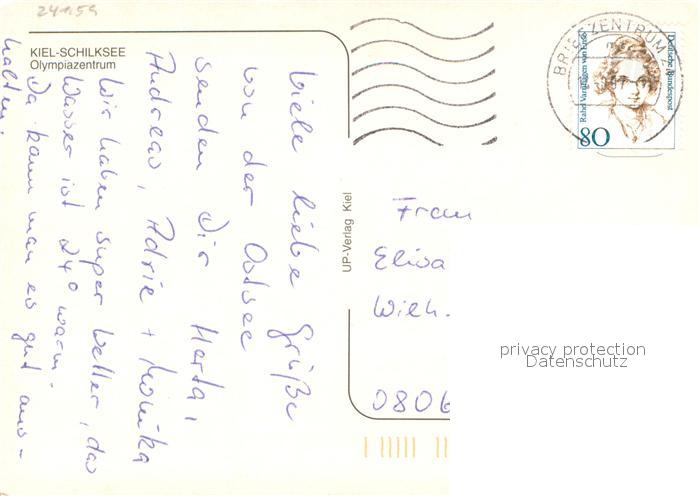 24059
KIEL-SCHILKSEE
Olympiazentrum
Viele liebe Grüße
von der Ostsee
senden Dir Herta,
Andreas, Adrie + Monika
Wir haben super Wetter, das
Wasser ist 24° warm.
Da kann man es gut aus-
halten.
UP-Verlag Kiel
BRIEFZENTRUM
Rahel Varnhagen von Ense
Deutsche Bundespost
80
Frau
Elisa
Wilh.
0806
privacy protection
Datenschutz